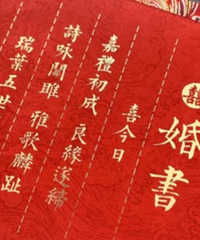 囍
婚書
喜今日
嘉禮初成 良緣遂締
詩咏關雎 雅歌麟趾
瑞葉五世